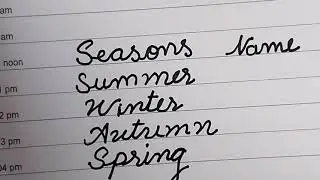 am
am
noon Seasons Name
Summer
pm Winter
2 pm Autumn
3 pm Spring
04 pm